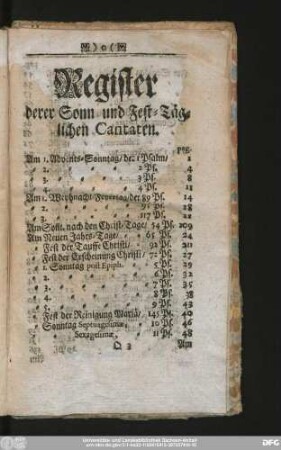 )o(
Register
derer Sonn- und Fest-Täg-
lichen Cantaten.
pag.
Am 1. Advents-Sonntag/ der 1 Psalm/ 1
2. 2 Ps. 4
3. 3 Ps. 8
4. 4 Ps. 11
Am 1. Weyhnacht-Feyertag/ der 89 Ps. 14
2. 91 Ps. 18
3. 117 Ps. 22
Am Sont. nach den Christ-Tage/ 54 Ps. 209
Am Neuen Jahrs-Tage/ 65 Ps. 24
Fest der Tauffe Christi/ 92 Ps. 201
Fest der Erscheinung Christi/ 72 Ps. 27
1. Sonntag post Epiph. 5 Ps. 29
2. 6 Ps. 32
3. 7 Ps. 35
4. 8 Ps. 38
5. 9 Ps. 43
Fest der Reinigung Mariä/ 145 Ps. 40
Sonntag Septuagesimæ, 10 Ps. 46
Sexagesimæ, 11 Ps. 48
Am